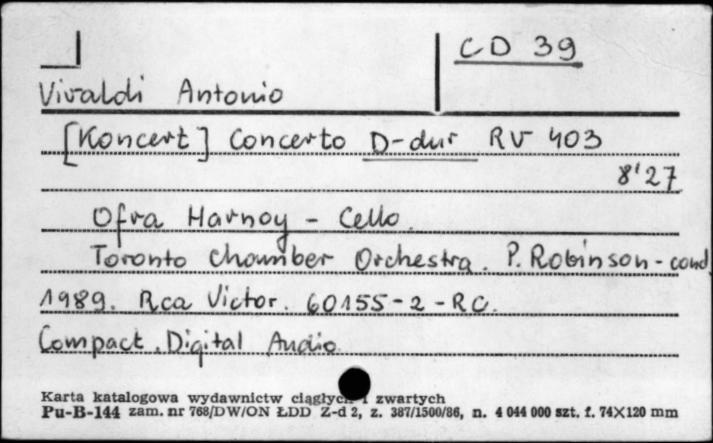 CD 39
Vivaldi Antonio
[Koncert] Concerto D-dur RV 403
8'27
Ofra Harnoy - Cello.
Toronto Chamber Orchestra. P. Robinson - cond
1989. Rca Victor. 60155-2-RC.
Compact. Digital Audio
Karta katalogowa wydawnictw ciągłych i zwartych
Pu-B-144 zam. nr 768/DW/ON ŁDD Z-d 2, z. 387/1500/86, n. 4 044 000 szt. f. 74X120 mm